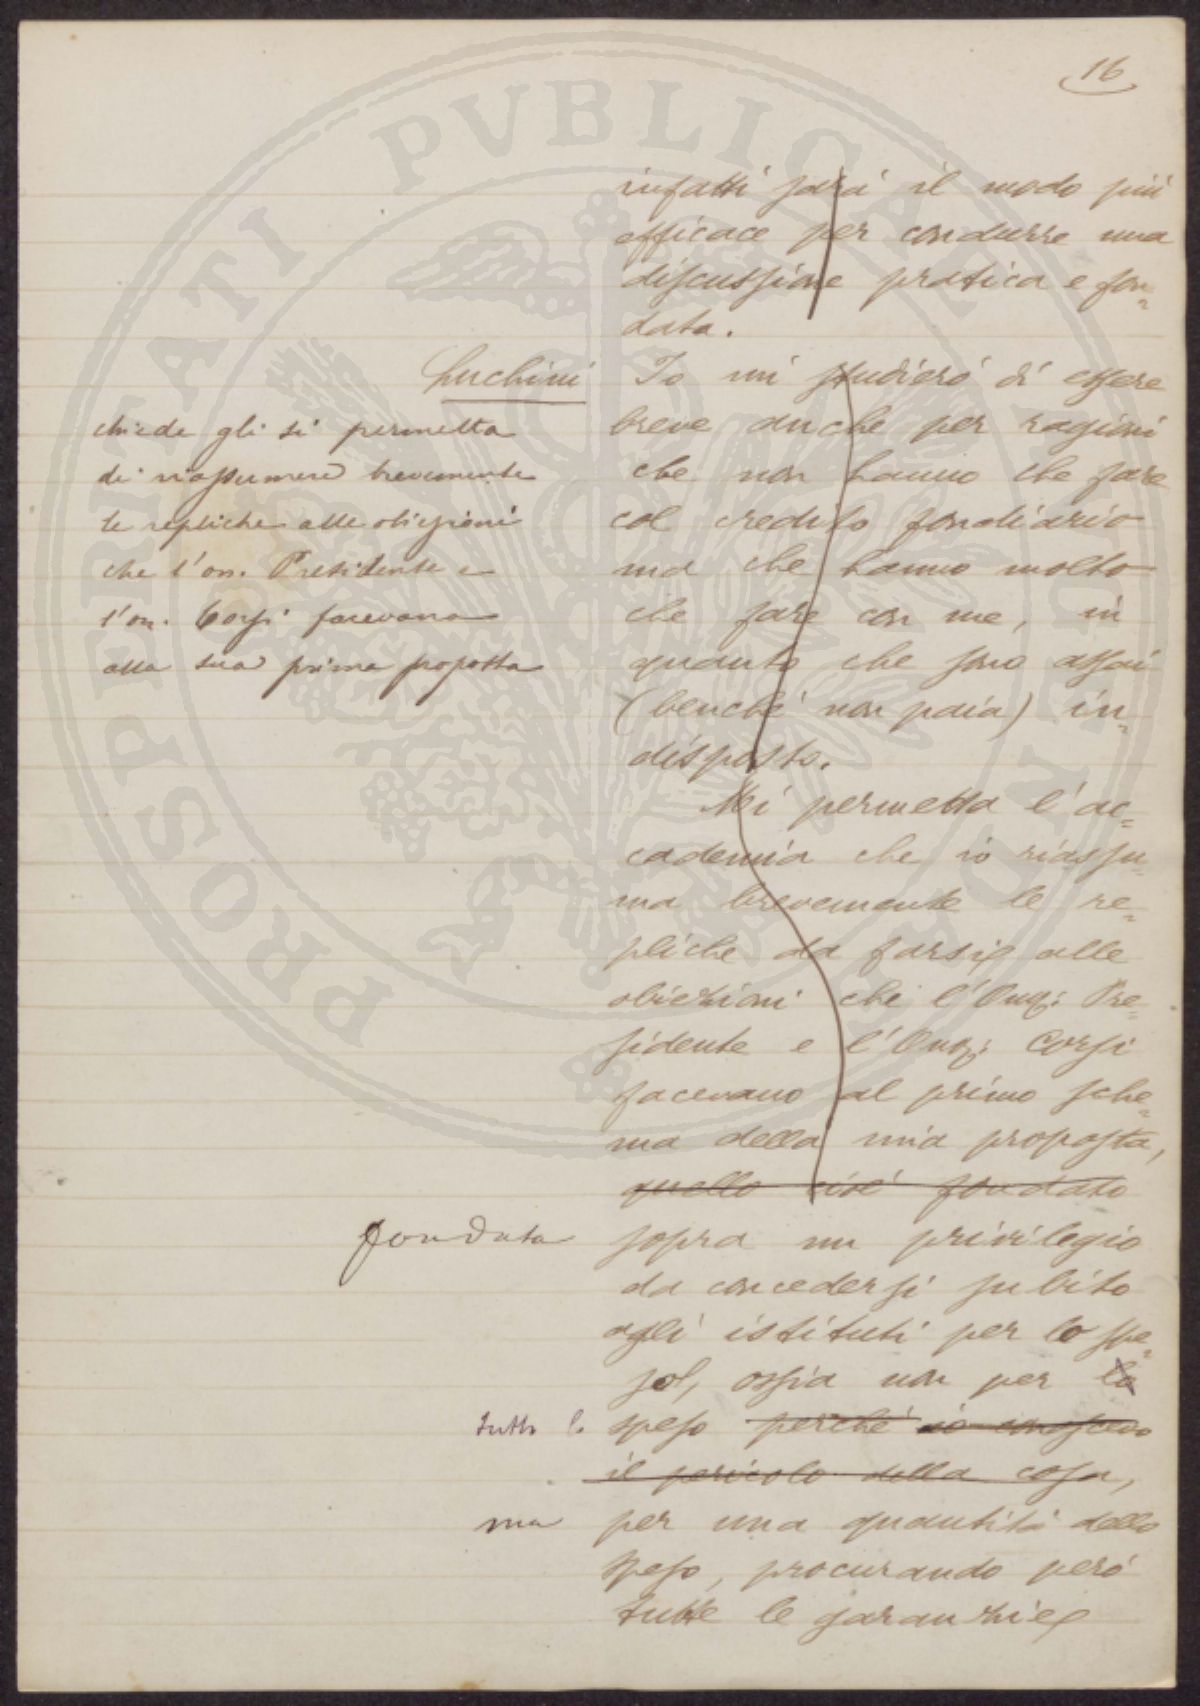 16
infatti sarà il modo più
efficace per condurre una
discussione pratica e fon=
data.
Luchini
chiede gli si permetta
di riassumere brevemente
le repliche alle obiezioni
che l'on. Presidente e
l'on. Corsi facevano
alla sua prima proposta
Io mi studierò di essere
breve anche per ragioni
che non hanno che fare
col credito fondiario
ma che hanno molto
che fare con me, in
quanto che sono assai
(benché non paia) in=
disposto.
Mi permetta l'ac=
cademia che io riassu=
ma brevemente le re=
pliche da farsi alle
obiezioni che l'Onor: Pre=
sidente e l'Onor: Corsi
facevano al primo sche=
ma della mia proposta,
quello cioè fondato
fondata
sopra un privilegio
da concedersi subito
agli istituti per lo spe=
so, ossia non per lo
tutto lo
speso perché io conoscevo
il pericolo della cosa,
ma
per una quantità dello
speso, procurando però
tutte le garanzie
PROSPERITATI PVBLICAE AVGENDAE